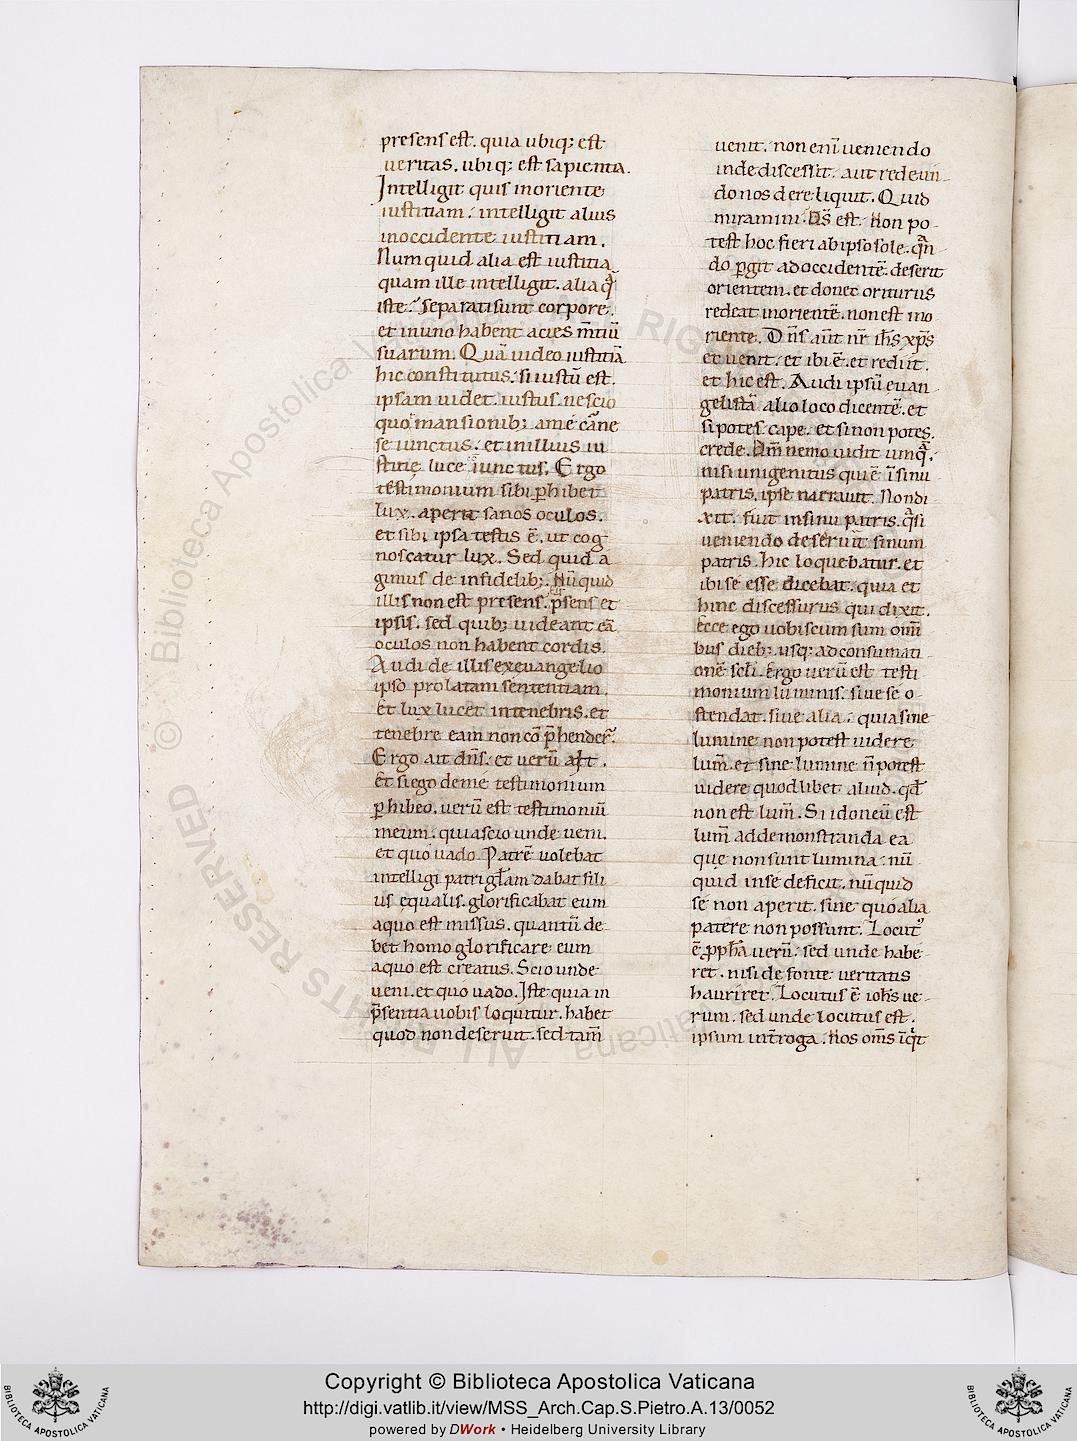 presens est. quia ubiq; est
ueritas. ubiq; est sapientia.
Intelligit quis inoriente
iustitiam. intelligit alius
inoccidente iustitiam.
Numquid alia est iustitia
quam ille intelligit. alia q̄
iste. Separati sunt corpore.
et inuno habent acies m̄tiū
suarum. Quā uideo iustitiā
hic constitutus. si iustū est.
ipsam uidet iustus. nescio
quo mansionib; amé cārne
se iunctus. et inillius iu
stitię luce iunctus. Ergo
testimonium sibi phibet
lux. aperit sanos oculos.
et sibi ipsa testis ē. ut cog
noscatur lux. Sed quid a
gimus de infidelib;. Nūquid
illis non est presens. p̄sens et
ipsis. sed quib; uideant eā
oculos non habent cordis.
Audi de illis exeuangelio
ipso prolatam sententiam.
Et lux lucet intenebris. et
tenebre eam non cōp̄hender̄.
Ergo ait dn̄s. et uerū ait.
Et si ego demé testimonium
phibeo. uerū est testimoniū
meum. quia scio unde ueni.
et quo uado. Patrē uolebat
intelligi patri gl̄am dabat fili
us ęqualis. glorificabat eum
aquo est missus. quantū de
bet homo glorificare eum
aquo est creatus. Scio unde
ueni. et quo uado. Iste quia in
p̄sentia uobis loquitur. habet
quod non deseruit. sed tam̄
uenit. non eni ueniendo
inde discessit. aut redeun
do nos dereliquit. Quid
miramini. Ds̄ est. Non po
test hoc fieri ab ipso sole. qn̄
do pgit ad occidentē. deserit
orientem. et donec oriturus
redeat inorientē. non est ino
riente. Dn̄s aūt nr̄ ih̄s xp̄s
et uenit. et ibi ē. et rediit.
et hic est. Audi ipsū euan
gelistā alio loco dicentē. et
si potes. cape. et si non potes.
crede. Dm̄ nemo uidit unq̄.
nisi unigenitus qui ē ī sinu
patris. ipse narrauit. Non di
xit. fuit insinu patris. q̄si
ueniendo deseruit sinum
patris. hic loquebatur. et
ibi se esse dicebat. quia et
hinc discessurus qui dixit.
Ecce ego uobiscum sum om̄i
bus dieb; usq; ad consumati
onē sc̄li. Ergo uerū est testi
monium luminis. siue se o
stendat. siue alia. quia sine
lumine non potest uidere
lum̄. et sine lumine n̄ potest
uidere quodlibet aliud. qd̄
non est lum̄. Si idoneū est
lum̄ addemonstranda ea
que non sunt lumina. nū
quid inse deficit. nūquid
se non aperit. sine quo alia
patere non possunt. Locut᾽
ē ppha uerū. sed unde habe
ret. nisi de fonte ueritatis
hauriret. Locutus ē ioh̄s ue
rum. sed unde locutus est.
ipsum int̄roga. Nos om̄s īq̇t
Copyright © Biblioteca Apostolica Vaticana
http://digi.vatlib.it/view/MSS_Arch.Cap.S.Pietro.A.13/0052
powered by DWork • Heidelberg University Library